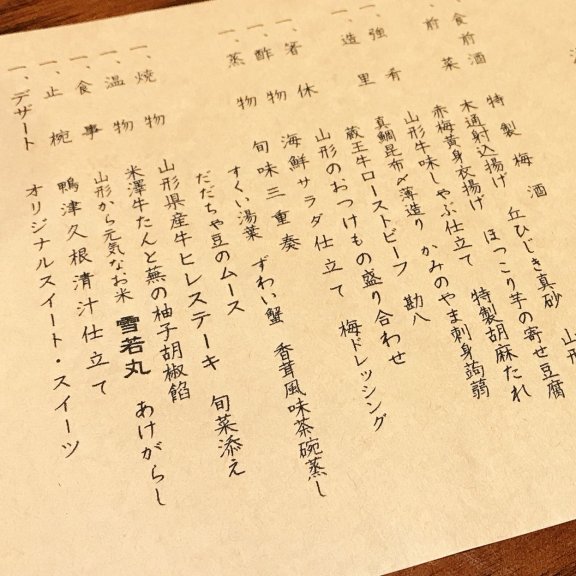 山形
一、食前酒 特製梅酒
一、前菜 木通射込揚げ 丘ひじき真砂
赤梅黄身衣揚げ ほっこり芋の寄せ豆腐
一、強肴 山形牛味しゃぶ仕立て 特製胡麻たれ
一、造里 真鯛昆布〆薄造り かみのやま刺身蒟蒻
蔵王牛ローストビーフ 勘八
一、箸休 山形のおつけもの盛り合わせ
一、酢物 海鮮サラダ仕立て 梅ドレッシング
一、蒸物 旬味三重奏 ずわい蟹 香茸風味茶碗蒸し
すくい湯葉
だだちゃ豆のムース
一、焼物 山形県産牛ヒレステーキ 旬菜添え
一、温物 米澤牛たんと蕪の柚子胡椒餡
一、食事 山形から元気なお米 雪若丸 あけがらし
一、止椀 鴨津久根清汁仕立て
一、デザート オリジナルスイート・スイーツ